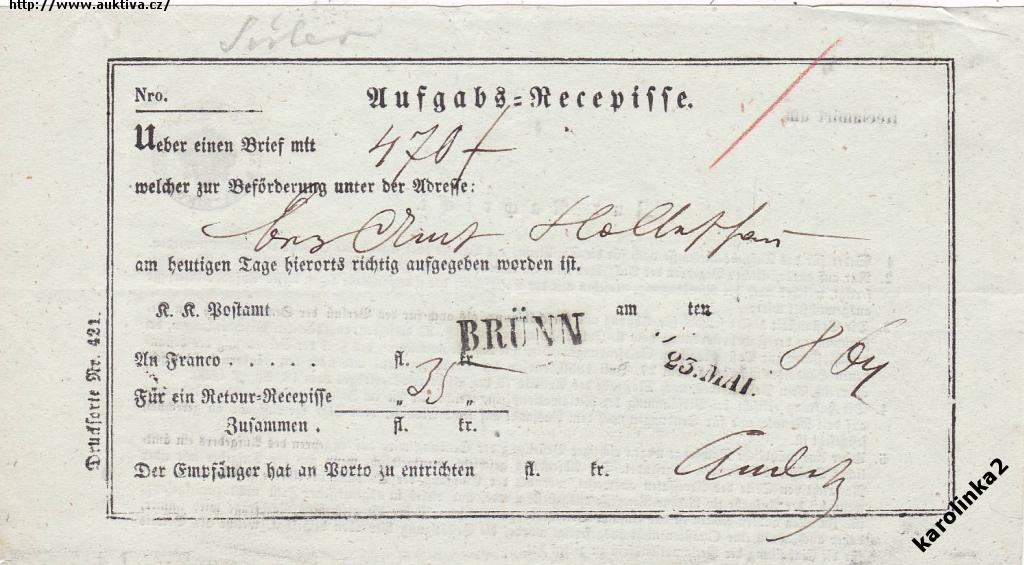 http://www.auktiva.cz/
Nro.
Aufgabs=Recepisse.
Ueber einen Brief mit 470 f
welcher zur Beförderung unter der Adresse:
am heutigen Tage hierorts richtig aufgegeben worden ist.
K. K. Postamt BRÜNN am ten
23. MAI.
An Franco . . . . . fl. 35 kr.
Für ein Retour-Recepisse „ „
Zusammen . fl. kr.
Der Empfänger hat an Porto zu entrichten fl. kr.
Drucksorte Nr. 421.
karolinka2